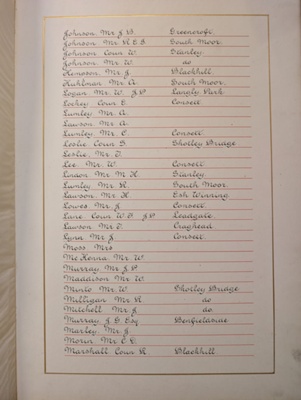 Johnson, Mr J B. Greencroft.
Johnson Mr R E B South Moor.
Johnson Coun W. Stanley
Johnson, Mr W. do
Kemsson, Mr J Blackhill.
Kuhlman, Mr A. South Moor.
Logan, Mr W. J P Langly Park.
Lockey, Coun E. Consett
Lumley Mr A.
Lawson Mr A
Lumley, Mr C. Consett.
Leslie, Coun G. Shotley Bridge
Leslie, Mr T.
Lee, Mr W. Consett
Lindon Mr M H. Stanley
Lumley, Mr R. South Moor.
Lawson, Mr H. Esh Winning.
Lowes Mr J Consett.
Lane, Coun W E J P Leadgate.
Lawson, Mr T. Craghead
Lynn, Mr J Consett.
Moss Mrs
McKenna, Mr W.
Murray, Mr J P.
Maddison Mr W.
Minto, Mr W. Shotley Bridge
Milligan, Mr R. do
Mitchell Mr J do.
Murray, J G. Esq Benfieldside
Marley, Mr J.
Morin, Mr E D.
Marshall Coun R. Blackhill